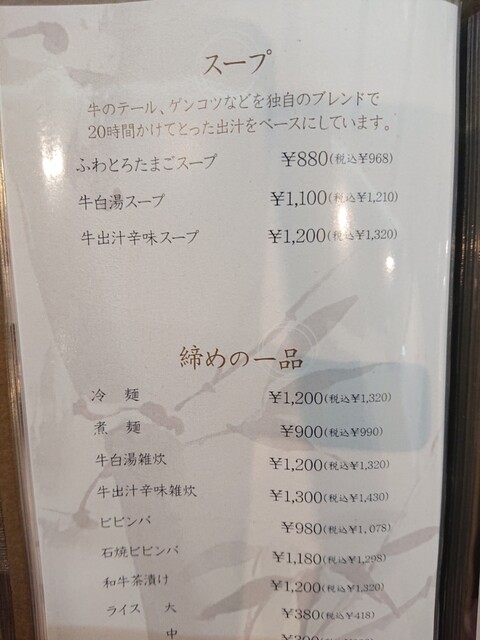 スープ
牛のテール、ゲンコツなどを独自のブレンドで
20時間かけてとった出汁をベースにしています。
ふわとろたまごスープ ¥880(税込¥968)
牛白湯スープ ¥1,100(税込¥1,210)
牛出汁辛味スープ ¥1,200(税込¥1,320)
締めの一品
冷 麺 ¥1,200(税込¥1,320)
煮 麺 ¥900(税込¥990)
牛白湯雑炊 ¥1,200(税込¥1,320)
牛出汁辛味雑炊 ¥1,300(税込¥1,430)
ビビンバ ¥980(税込¥1,078)
石焼ビビンバ ¥1,180(税込¥1,298)
和牛茶漬け ¥1,200(税込¥1,320)
ライス 大 ¥380(税込¥418)
中